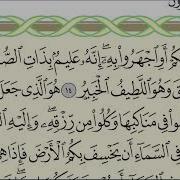 كُمْ أَوِ ٱجْهَرُوا۟ بِهِۦٓ ۖ إِنَّهُۥ عَلِيمٌۢ بِذَاتِ ٱلصُّ
قَ وَهُوَ ٱللَّطِيفُ ٱلْخَبِيرُ ١٤ هُوَ ٱلَّذِى جَعَلَ
وا۟ فِى مَنَاكِبِهَا وَكُلُوا۟ مِن رِّزْقِهِۦ ۖ وَإِلَيْهِ ٱل
فِى ٱلسَّمَآءِ أَن يَخْسِفَ بِكُمُ ٱلْأَرْضَ فَإِذَا هِ